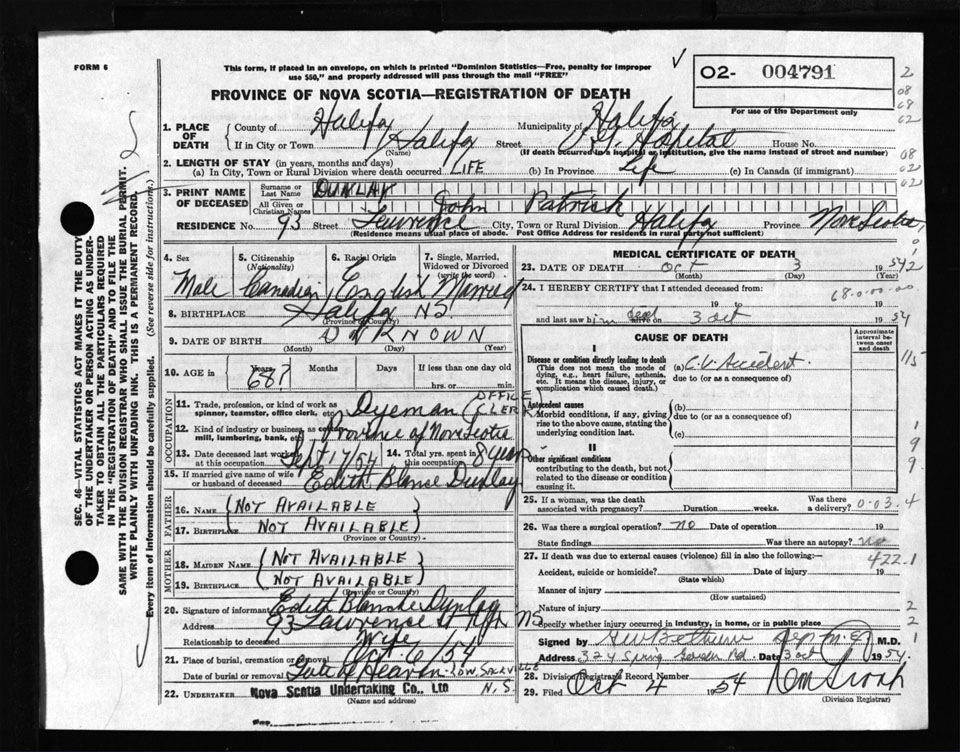 FORM 6
This form, if placed in an envelope, on which is printed "Dominion Statistics—Free, penalty for improper
use $50," and properly addressed will pass through the mail "FREE"
O2- 004791
For use of the Department only
PROVINCE OF NOVA SCOTIA—REGISTRATION OF DEATH
1. PLACE OF DEATH
County of Halifax Municipality of Halifax
If in City or Town Halifax Street Hospital House No.
(Name) (If death occurred in a hospital or institution, give the name instead of street and number)
2. LENGTH OF STAY (in years, months and days)
(a) In City, Town or Rural Division where death occurred LIFE (b) In Province Life (c) In Canada (if immigrant)
3. PRINT NAME OF DECEASED
Surname or Last Name DUNLAY
All Given or Christian Names John Patrick
RESIDENCE No. 93 Street Lawrence City, Town or Rural Division Halifax Province Nova Scotia
(Residence means usual place of abode. Post Office Address for residents in rural parts not sufficient)
4. Sex Male
5. Citizenship (Nationality) Canadian
6. Racial Origin English
7. Single, Married, Widowed or Divorced (write the word) Married
8. BIRTHPLACE Halifax N.S.
(Province or Country)
9. DATE OF BIRTH UNKNOWN
(Month) (Day) (Year)
10. AGE in Years 68? Months Days If less than one day old hrs. or min.
OCCUPATION
11. Trade, profession, or kind of work as spinner, teamster, office clerk, etc. Dyeman (OFFICE CLERK
12. Kind of industry or business, as cotton mill, lumbering, bank, etc. Province of Nova Scotia
13. Date deceased last worked at this occupation Sept 17/54
14. Total yrs. spent in this occupation 8 years
15. If married give name of wife or husband of deceased Edith Blance Dunlay
FATHER
16. NAME (NOT AVAILABLE)
17. BIRTHPLACE (NOT AVAILABLE)
(Province or Country)
MOTHER
18. MAIDEN NAME (NOT AVAILABLE)
19. BIRTHPLACE (NOT AVAILABLE)
(Province or Country)
20. Signature of informant Edith Blanche Dunlay
Address 93 Lawrence St Hfx NS
Relationship to deceased Wife
21. Place of burial, cremation or removal
Date of burial or removal Oct. 6/54
Gate of Heaven LOW. SACKVILLE N.S.
22. UNDERTAKER Nova Scotia Undertaking Co., Ltd
(Name and address)
MEDICAL CERTIFICATE OF DEATH
23. DATE OF DEATH Oct 3 1954
(Month) (Day) (Year)
24. I HEREBY CERTIFY that I attended deceased from:
19 to 19
and last saw him dead alive on 3 Oct 1954
68.0.00.00
CAUSE OF DEATH
Approximate interval between onset and death
I
Disease or condition directly leading to death
(This does not mean the mode of dying, e.g., heart failure, asthenia, etc. It means the disease, injury, or complication which caused death.)
(a) C.V. Accident.
due to (or as a consequence of)
Antecedent causes
Morbid conditions, if any, giving rise to the above cause, stating the underlying condition last.
(b)
due to (or as a consequence of)
(c)
II
Other significant conditions
contributing to the death, but not related to the disease or condition causing it.
25. If a woman, was the death associated with pregnancy? Duration weeks. Was there a delivery? 0.03.4
26. Was there a surgical operation? no Date of operation 19
State findings Was there an autopsy? no
27. If death was due to external causes (violence) fill in also the following:— 422.1
Accident, suicide or homicide? Date of injury 19
(State which)
Manner of injury
(How sustained)
Nature of injury
Specify whether injury occurred in industry, in home, or in public place
Signed by M.D.
Address 324 Spring Garden Rd. Date 3 Oct 1954.
28. Division Registrar's Record Number
29. Filed Oct 4 1954
(Division Registrar)
SEC. 46—VITAL STATISTICS ACT MAKES IT THE DUTY
OF THE UNDERTAKER OR PERSON ACTING AS UNDER-
TAKER TO OBTAIN ALL THE PARTICULARS REQUIRED
IN THE "REGISTRATION OF DEATH" AND TO FILE THE
SAME WITH THE DIVISION REGISTRAR WHO SHALL ISSUE THE BURIAL PERMIT.
WRITE PLAINLY WITH UNFADING INK. THIS IS A PERMANENT RECORD.
Every item of information should be carefully supplied. (See reverse side for instructions.)